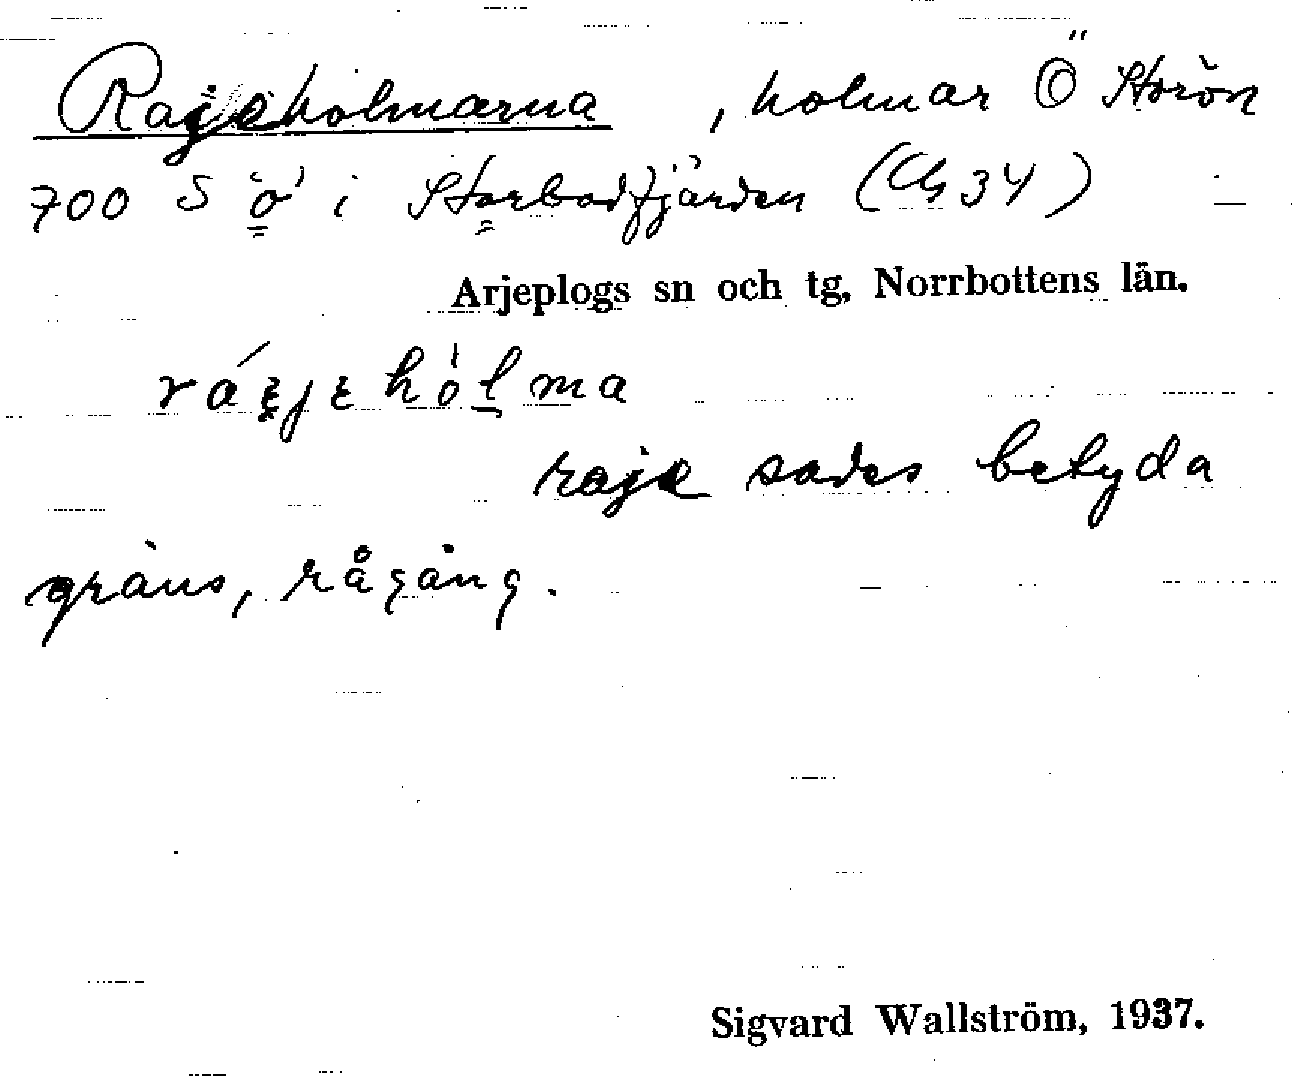 Rajeholmarna, holmar Ö Storön
700 S ö i Storbodfjärden (Ch 34)
Arjeplogs sn och tg, Norrbottens län.
raje sades betyda
gräns, rågång.
Sigvard Wallström, 1937.